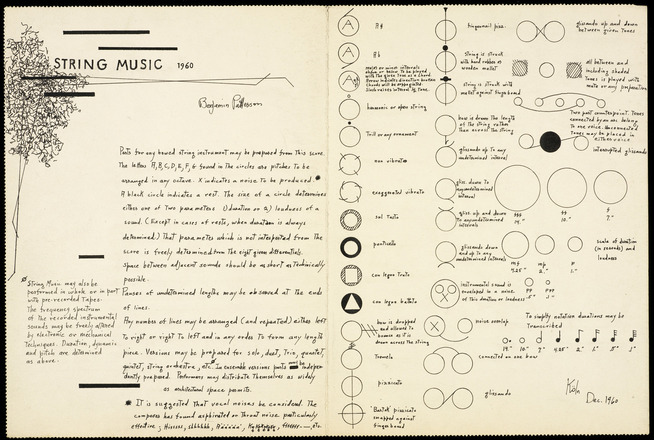 STRING MUSIC 1960
Benjamin Patterson
Parts for any bowed string instrument may be prepared from this score.
The letters A, B, C, D, E, F, G found in the circles are pitches to be
arranged in any octave. X indicates a noise to be produced.
A black circle indicates a rest. The size of a circle determines
either one of two parameters 1) duration or 2) loudness of a
sound. (Except in cases of rests, when duration is always
determined.) That parameter which is not interpreted from the
score is freely determined from the eight given differentials.
Space between adjacent sounds should be as short as technically
possible.
Pauses of undetermined lengths may be observed at the ends
of lines.
Any number of lines may be arranged (and repeated) either left
to right or right to left and in any order to form any length
piece. Versions may be prepared for solo, duet, trio, quartet,
quintet, string orchestra, etc. In ensemble versions parts must be indepen-
dently prepared. Performers may distribute themselves as widely
as architectural space permits.
It is suggested that vocal noises be considered. The
composer has found aspirated or throat noise particularly
effective; Hissss, shhhhhh,
String Music may also be
performed in whole or in part
with pre-recorded tapes.
The frequency spectrum
of the recorded instrumental
sounds may be freely altered
by electronic or mechanical
techniques. Duration, dynamics
and pitch are determined
as above.
A
A
A
harmonic or open string
Trill or any ornament
non vibrato
exaggerated vibrato
sul tasto
ponticello
con legno tratto
con legno battuto
bow is dropped
and allowed to
bounce as it is
drawn across the string
Tremolo
pizzicato
Bartok pizzicato
snapped against
fingerboard
fingernail pizz.
string is struck
with hand rubber or
wooden mallet
string is struck with
metal against fingerboard
bow is drawn the length
of the string rather
than across the string
glissando up to any
undetermined interval
gliss. down to
any undetermined
interval
gliss. up and down
to any undetermined
intervals
glissando down
and up to any
undetermined intervals
instrumental sound is
enveloped in a noise
of this duration or loudness
X
noise overlap
connected on one bow
glissando
glissando up and down
between given tones
all between and
including shaded
tones is played with
mute or any preparation
Two part counterpoint. Tones
connected by an arc belong
to one voice. Unconnected
tones may be placed in
either voice
interrupted glissando
fff
15."
ff
10."
f
7."
mf
mp
2."
p
1."
scale of duration
(in seconds) and
loudness
pp
ppp
To simplify notation durations may be
transcribed
15."
10."
7."
2."
1."
Köln
Dec. 1960